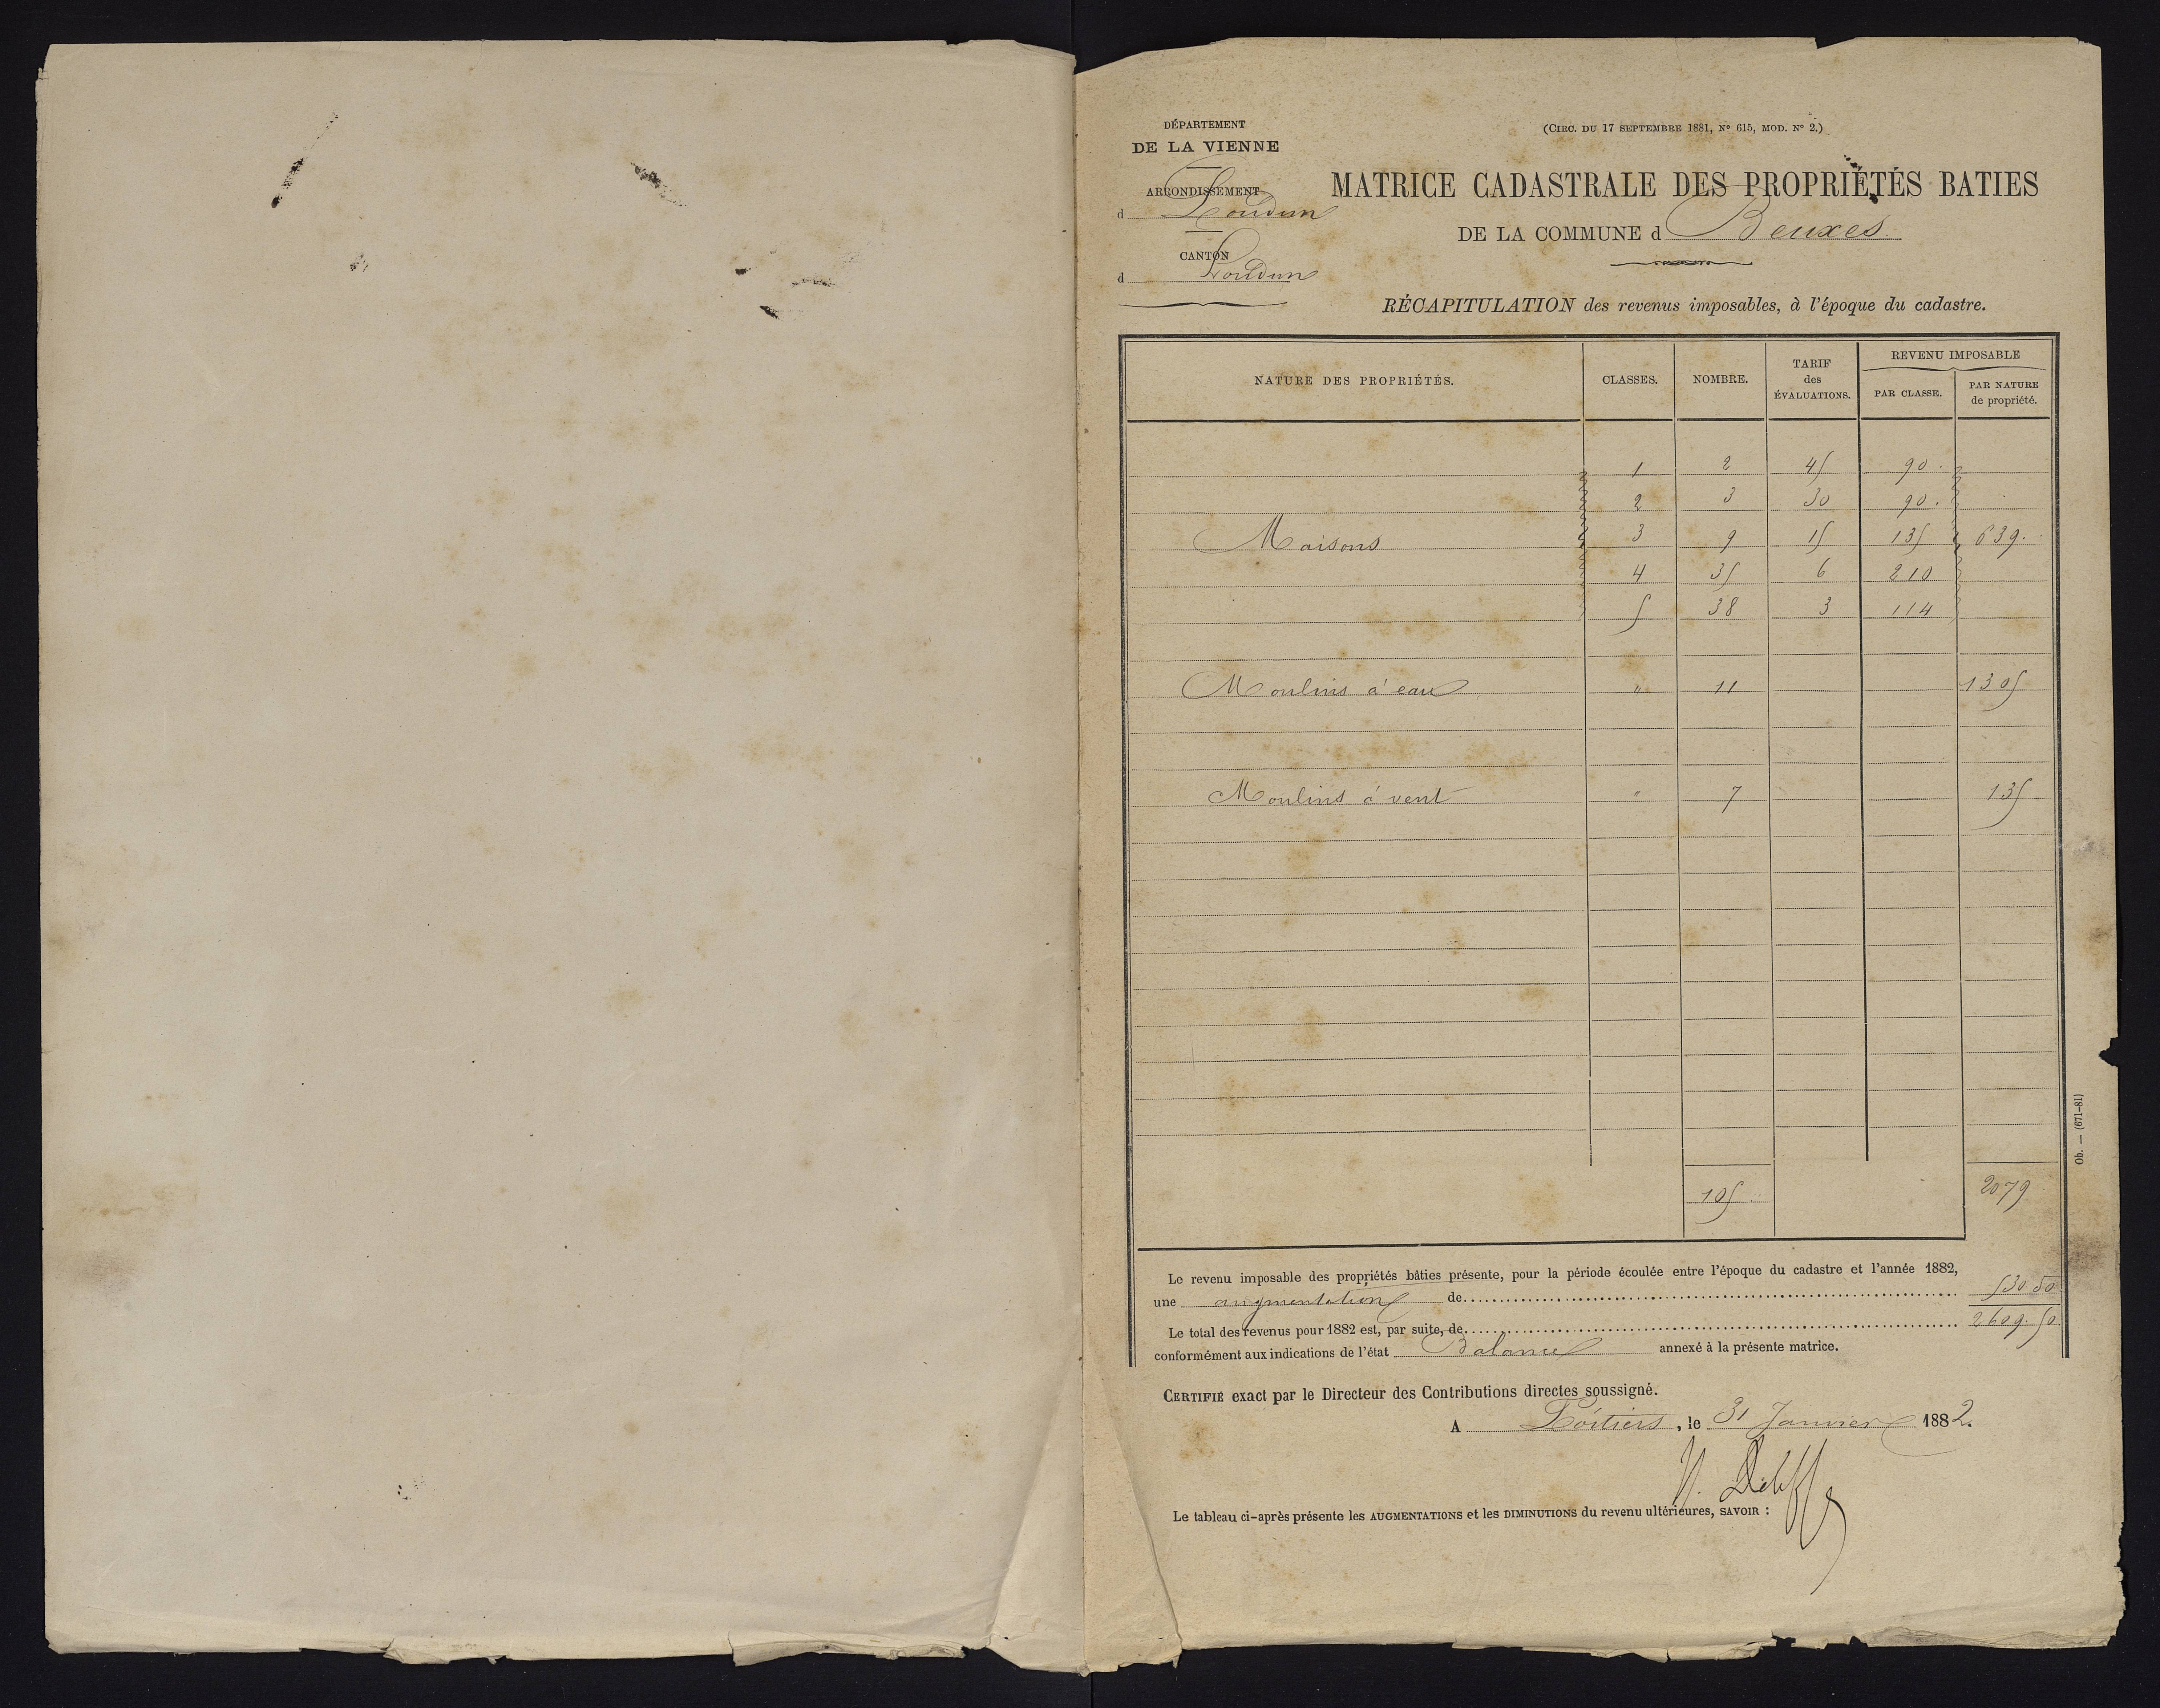 DÉPARTEMENT
DE LA VIENNE
ARRONDISSEMENT
d Loudun
CANTON
d Loudun
(CIRC. DU 17 SEPTEMBRE 1881, N° 615, MOD. N° 2.)
MATRICE CADASTRALE DES PROPRIÉTÉS BATIES
DE LA COMMUNE d Beuxes
RÉCAPITULATION des revenus imposables, à l'époque du cadastre.
NATURE DES PROPRIÉTÉS. CLASSES. NOMBRE. TARIF des ÉVALUATIONS. REVENU IMPOSABLE PAR CLASSE. PAR NATURE de propriété.
1 2 45 90.
2 3 30 90.
Maisons 3 9 15 135 639.
4 35 6 210
5 38 3 114
Moulins à eau " 11 1305
Moulins à vent " 7 135
105 2079
Le revenu imposable des propriétés bâties présente, pour la période écoulée entre l'époque du cadastre et l'année 1882,
une augmentation de 530 50
Le total des revenus pour 1882 est, par suite, de 2609. 50
conformément aux indications de l'état Balance annexé à la présente matrice.
CERTIFIÉ exact par le Directeur des Contributions directes soussigné.
A Poitiers, le 31 Janvier 1882.
Le tableau ci-après présente les AUGMENTATIONS et les DIMINUTIONS du revenu ultérieures, SAVOIR :
Ob. — (671-81)